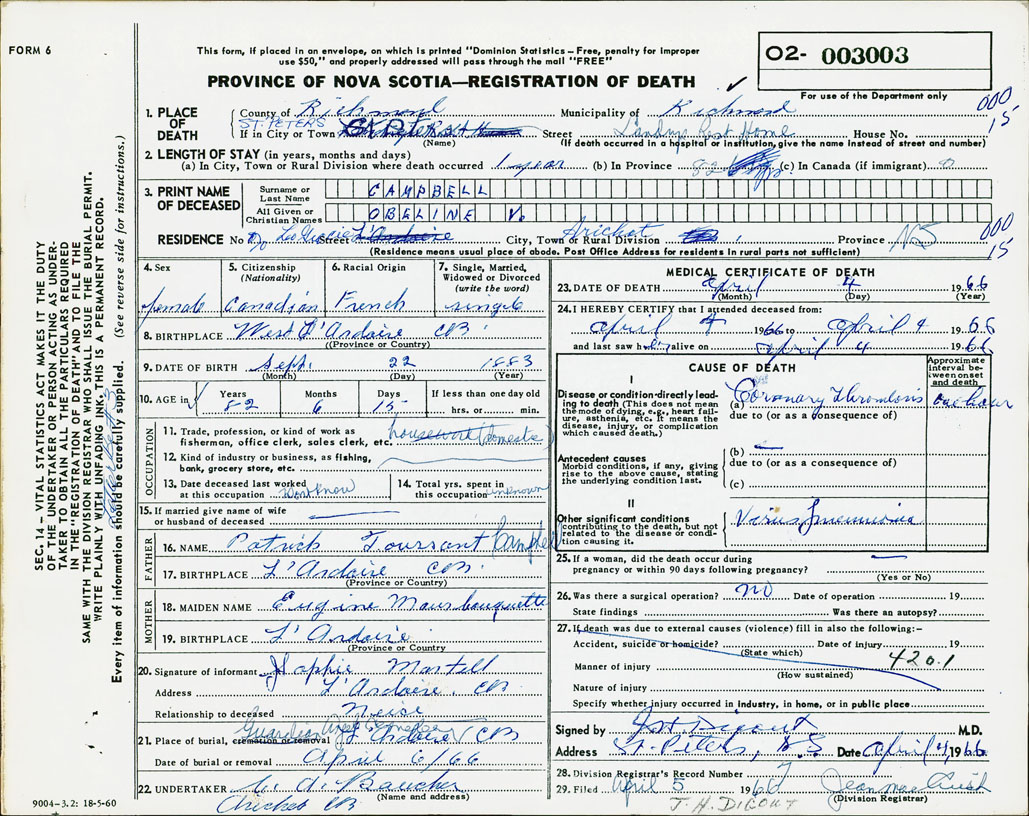 FORM 6
This form, if placed in an envelope, on which is printed "Dominion Statistics – Free, penalty for improper
use $50," and properly addressed will pass through the mail "FREE"
O2- 003003
For use of the Department only
PROVINCE OF NOVA SCOTIA—REGISTRATION OF DEATH
000
15
1. PLACE OF DEATH
County of Richmond Municipality of Richmond
ST. PETERS
If in City or Town Street House No.
(Name) (If death occurred in a hospital or institution, give the name instead of street and number)
2. LENGTH OF STAY (in years, months and days)
(a) In City, Town or Rural Division where death occurred 1 year (b) In Province 82 (c) In Canada (if immigrant) 0
3. PRINT NAME OF DECEASED
Surname or Last Name CAMPBELL
All Given or Christian Names OBELINE V.
000
15
RESIDENCE No. Street L'Ardoise City, Town or Rural Division Arichat Province NS
(Residence means usual place of abode. Post Office Address for residents in rural parts not sufficient)
4. Sex female
5. Citizenship (Nationality) Canadian
6. Racial Origin French
7. Single, Married, Widowed or Divorced (write the word) single
8. BIRTHPLACE West L'Ardoise CB
(Province or Country)
9. DATE OF BIRTH Sept. 22 1883
(Month) (Day) (Year)
10. AGE in Years 82 Months 6 Days 15 If less than one day old hrs. or min.
OCCUPATION
11. Trade, profession, or kind of work as
fisherman, office clerk, sales clerk, etc. housework (domestic)
12. Kind of industry or business, as fishing,
bank, grocery store, etc.
13. Date deceased last worked
at this occupation Dont know
14. Total yrs. spent in
this occupation unknown
15. If married give name of wife
or husband of deceased
FATHER
16. NAME Patrick Toussant Campbell
17. BIRTHPLACE L'Ardoise CB
(Province or Country)
MOTHER
18. MAIDEN NAME Eugine
19. BIRTHPLACE L'Ardoise
(Province or Country)
20. Signature of informant Sophie Martell
Address L'Ardoise. CB
Relationship to deceased Neise
21. Place of burial, cremation or removal L'Ardoise CB
Date of burial or removal April 6/66
22. UNDERTAKER C. A. Boucher
(Name and address)
Arichat CB
MEDICAL CERTIFICATE OF DEATH
23. DATE OF DEATH April 4 1966
(Month) (Day) (Year)
24. I HEREBY CERTIFY that I attended deceased from:
April 4 1966 to April 4 1966
and last saw her alive on April 4 1966
CAUSE OF DEATH
Approximate interval between onset and death
I
Disease or condition directly leading to death (This does not mean the mode of dying, e.g., heart failure, asthenia, etc. It means the disease, injury, or complication which caused death.)
(a) Coronary Thrombosis one hour
due to (or as a consequence of)
Antecedent causes
Morbid conditions, if any, giving rise to the above cause, stating the underlying condition last.
(b)
due to (or as a consequence of)
(c)
II
Other significant conditions contributing to the death, but not related to the disease or condition causing it.
Virus Pneumonia
25. If a woman, did the death occur during
pregnancy or within 90 days following pregnancy?
(Yes or No)
26. Was there a surgical operation? NO Date of operation 19
State findings Was there an autopsy?
27. If death was due to external causes (violence) fill in also the following:–
Accident, suicide or homicide? Date of injury 19
(State which)
420.1
Manner of injury
(How sustained)
Nature of injury
Specify whether injury occurred in industry, in home, or in public place
Signed by J. H. Digout M.D.
Address St. Peters, N.S Date April 4, 1966
28. Division Registrar's Record Number 7
29. Filed April 5 1966
(Division Registrar)
J. H. DIGOUT
SEC. 14 – VITAL STATISTICS ACT MAKES IT THE DUTY
OF THE UNDERTAKER OR PERSON ACTING AS UNDER-
TAKER TO OBTAIN ALL THE PARTICULARS REQUIRED
IN THE "REGISTRATION OF DEATH" AND TO FILE THE
SAME WITH THE DIVISION REGISTRAR WHO SHALL ISSUE THE BURIAL PERMIT.
WRITE PLAINLY WITH UNFADING INK. THIS IS A PERMANENT RECORD.
Every item of information should be carefully supplied. (See reverse side for instructions.)
9004-3.2: 18-5-60